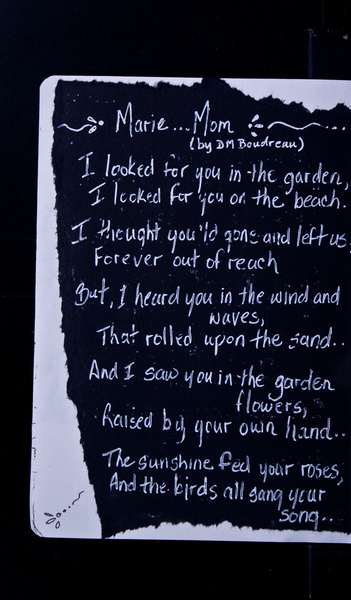 Marie... Mom
(by DM Boudreau)
I looked for you in the garden,
I looked for you on the beach.
I thought you'ld gone and left us
Forever out of reach
But, I heard you in the wind and
waves,
That rolled upon the sand..
And I saw you in the garden
flowers,
Raised by your own hand..
The sunshine feel your roses,
And the birds all sang your
song..